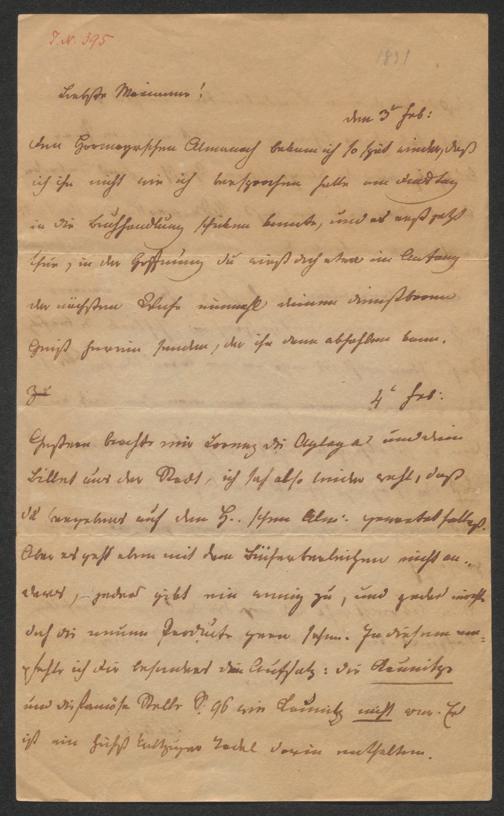 J. N. 395
1831
Liebste Marianne!
den 3t Feb:
den Hormayrschen Almanach bekam ich so spät wieder, daß
ich ihn nicht wie ich versprochen hatte am Dinstag
in die Buchhandlung schicken konnte, und es erst jetzt
thue, in der Hoffnung du wirst doch etwa im Anfang
der nächsten Woche einmahl deinen dienstbaren
Geist herein senden, der ihn dann abhohlen kann.
4t Feb:
Gestern brachte mir Lorenz die Aglaja und dein
Billet aus der Stadt, ich sah also leider wohl, daß
du vergebens auf den H.. schen Alm: gewartet hattest.
Aber es geht eben mit dem Bücherverleihen nicht an-
ders, jeder gibt ein wenig zu, und jeder möchte
doch die neuen Produkte gern sehen. In diesem em-
pfehle ich dir besonders den Aufsatz: die Kaunitze
und die famöse Stelle S. 96 wie Kaunitz nicht war. Es
ist ein höchst Tadel darin enthalten.